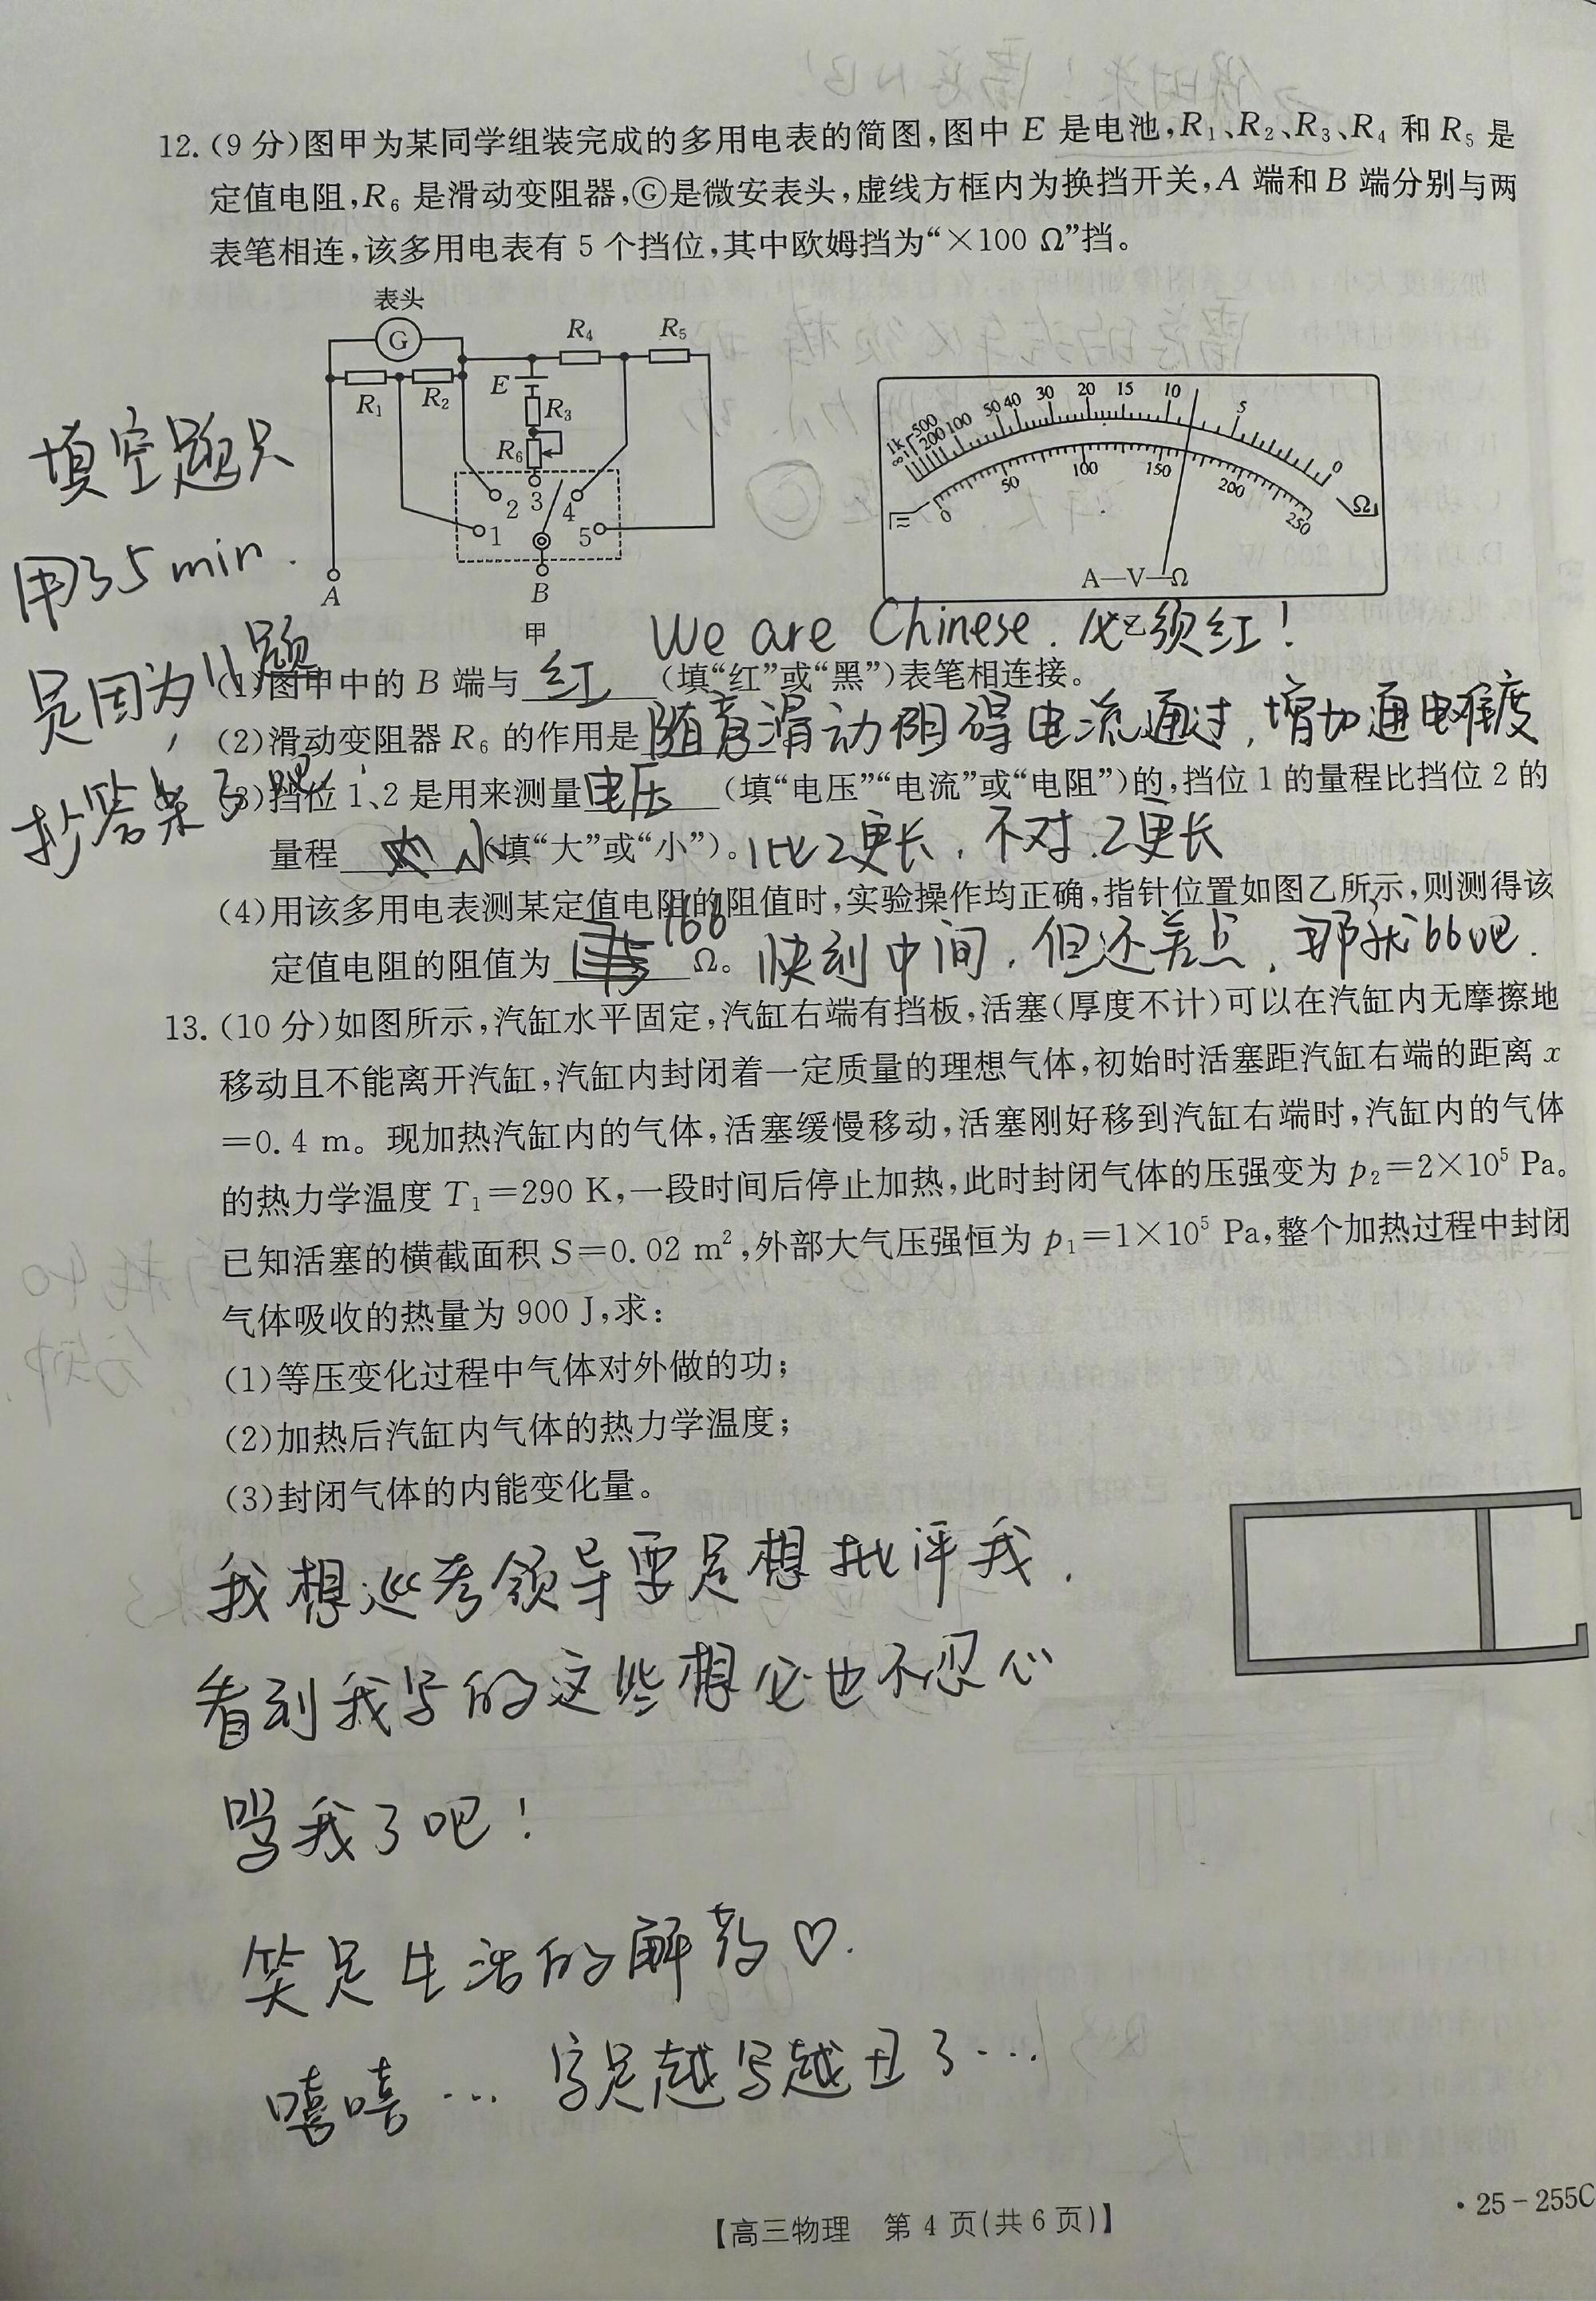 12.(9 分)图甲为某同学组装完成的多用电表的简图,图中 E 是电池,R₁、R₂、R₃、R₄ 和 R₅ 是
定值电阻,R₆ 是滑动变阻器,Ⓖ是微安表头,虚线方框内为换挡开关,A 端和 B 端分别与两
表笔相连,该多用电表有 5 个挡位,其中欧姆挡为“×100 Ω”挡。
表头
G
R₁
R₂
E
R₃
R₆
R₄
R₅
1
2
3
4
5
A
B
甲
1k
500
200
100
50
40
30
20
15
10
5
0
∞
Ω
0
50
100
150
200
250
A—V—Ω
填空题只
用了5 min.
是因为11题
抄答案了吧!
We are Chinese. 必须红!
(1)图甲中的 B 端与 红 (填“红”或“黑”)表笔相连接。
(2)滑动变阻器 R₆ 的作用是 随意滑动阻碍电流通过,增加通电难度
(3)挡位 1、2 是用来测量 电压 (填“电压”“电流”或“电阻”)的,挡位 1 的量程比挡位 2 的
量程 小 (填“大”或“小”)。1比2更长,不对,2更长
(4)用该多用电表测某定值电阻的阻值时,实验操作均正确,指针位置如图乙所示,则测得该
定值电阻的阻值为 166 Ω。 快到中间,但还差点,那就66吧.
13.(10 分)如图所示,汽缸水平固定,汽缸右端有挡板,活塞(厚度不计)可以在汽缸内无摩擦地
移动且不能离开汽缸,汽缸内封闭着一定质量的理想气体,初始时活塞距汽缸右端的距离 x
=0.4 m。现加热汽缸内的气体,活塞缓慢移动,活塞刚好移到汽缸右端时,汽缸内的气体
的热力学温度 T₁=290 K,一段时间后停止加热,此时封闭气体的压强变为 p₂=2×10⁵ Pa。
已知活塞的横截面积 S=0.02 m²,外部大气压强恒为 p₁=1×10⁵ Pa,整个加热过程中封闭
气体吸收的热量为 900 J,求:
(1)等压变化过程中气体对外做的功;
(2)加热后汽缸内气体的热力学温度;
(3)封闭气体的内能变化量。
我想巡考领导要是想批评我.
看到我写的这些想必也不忍心
骂我了吧!
笑是生活的解药♡.
嘻嘻… 字是越写越丑了…
【高三物理 第 4 页(共 6 页)】
·25-255C